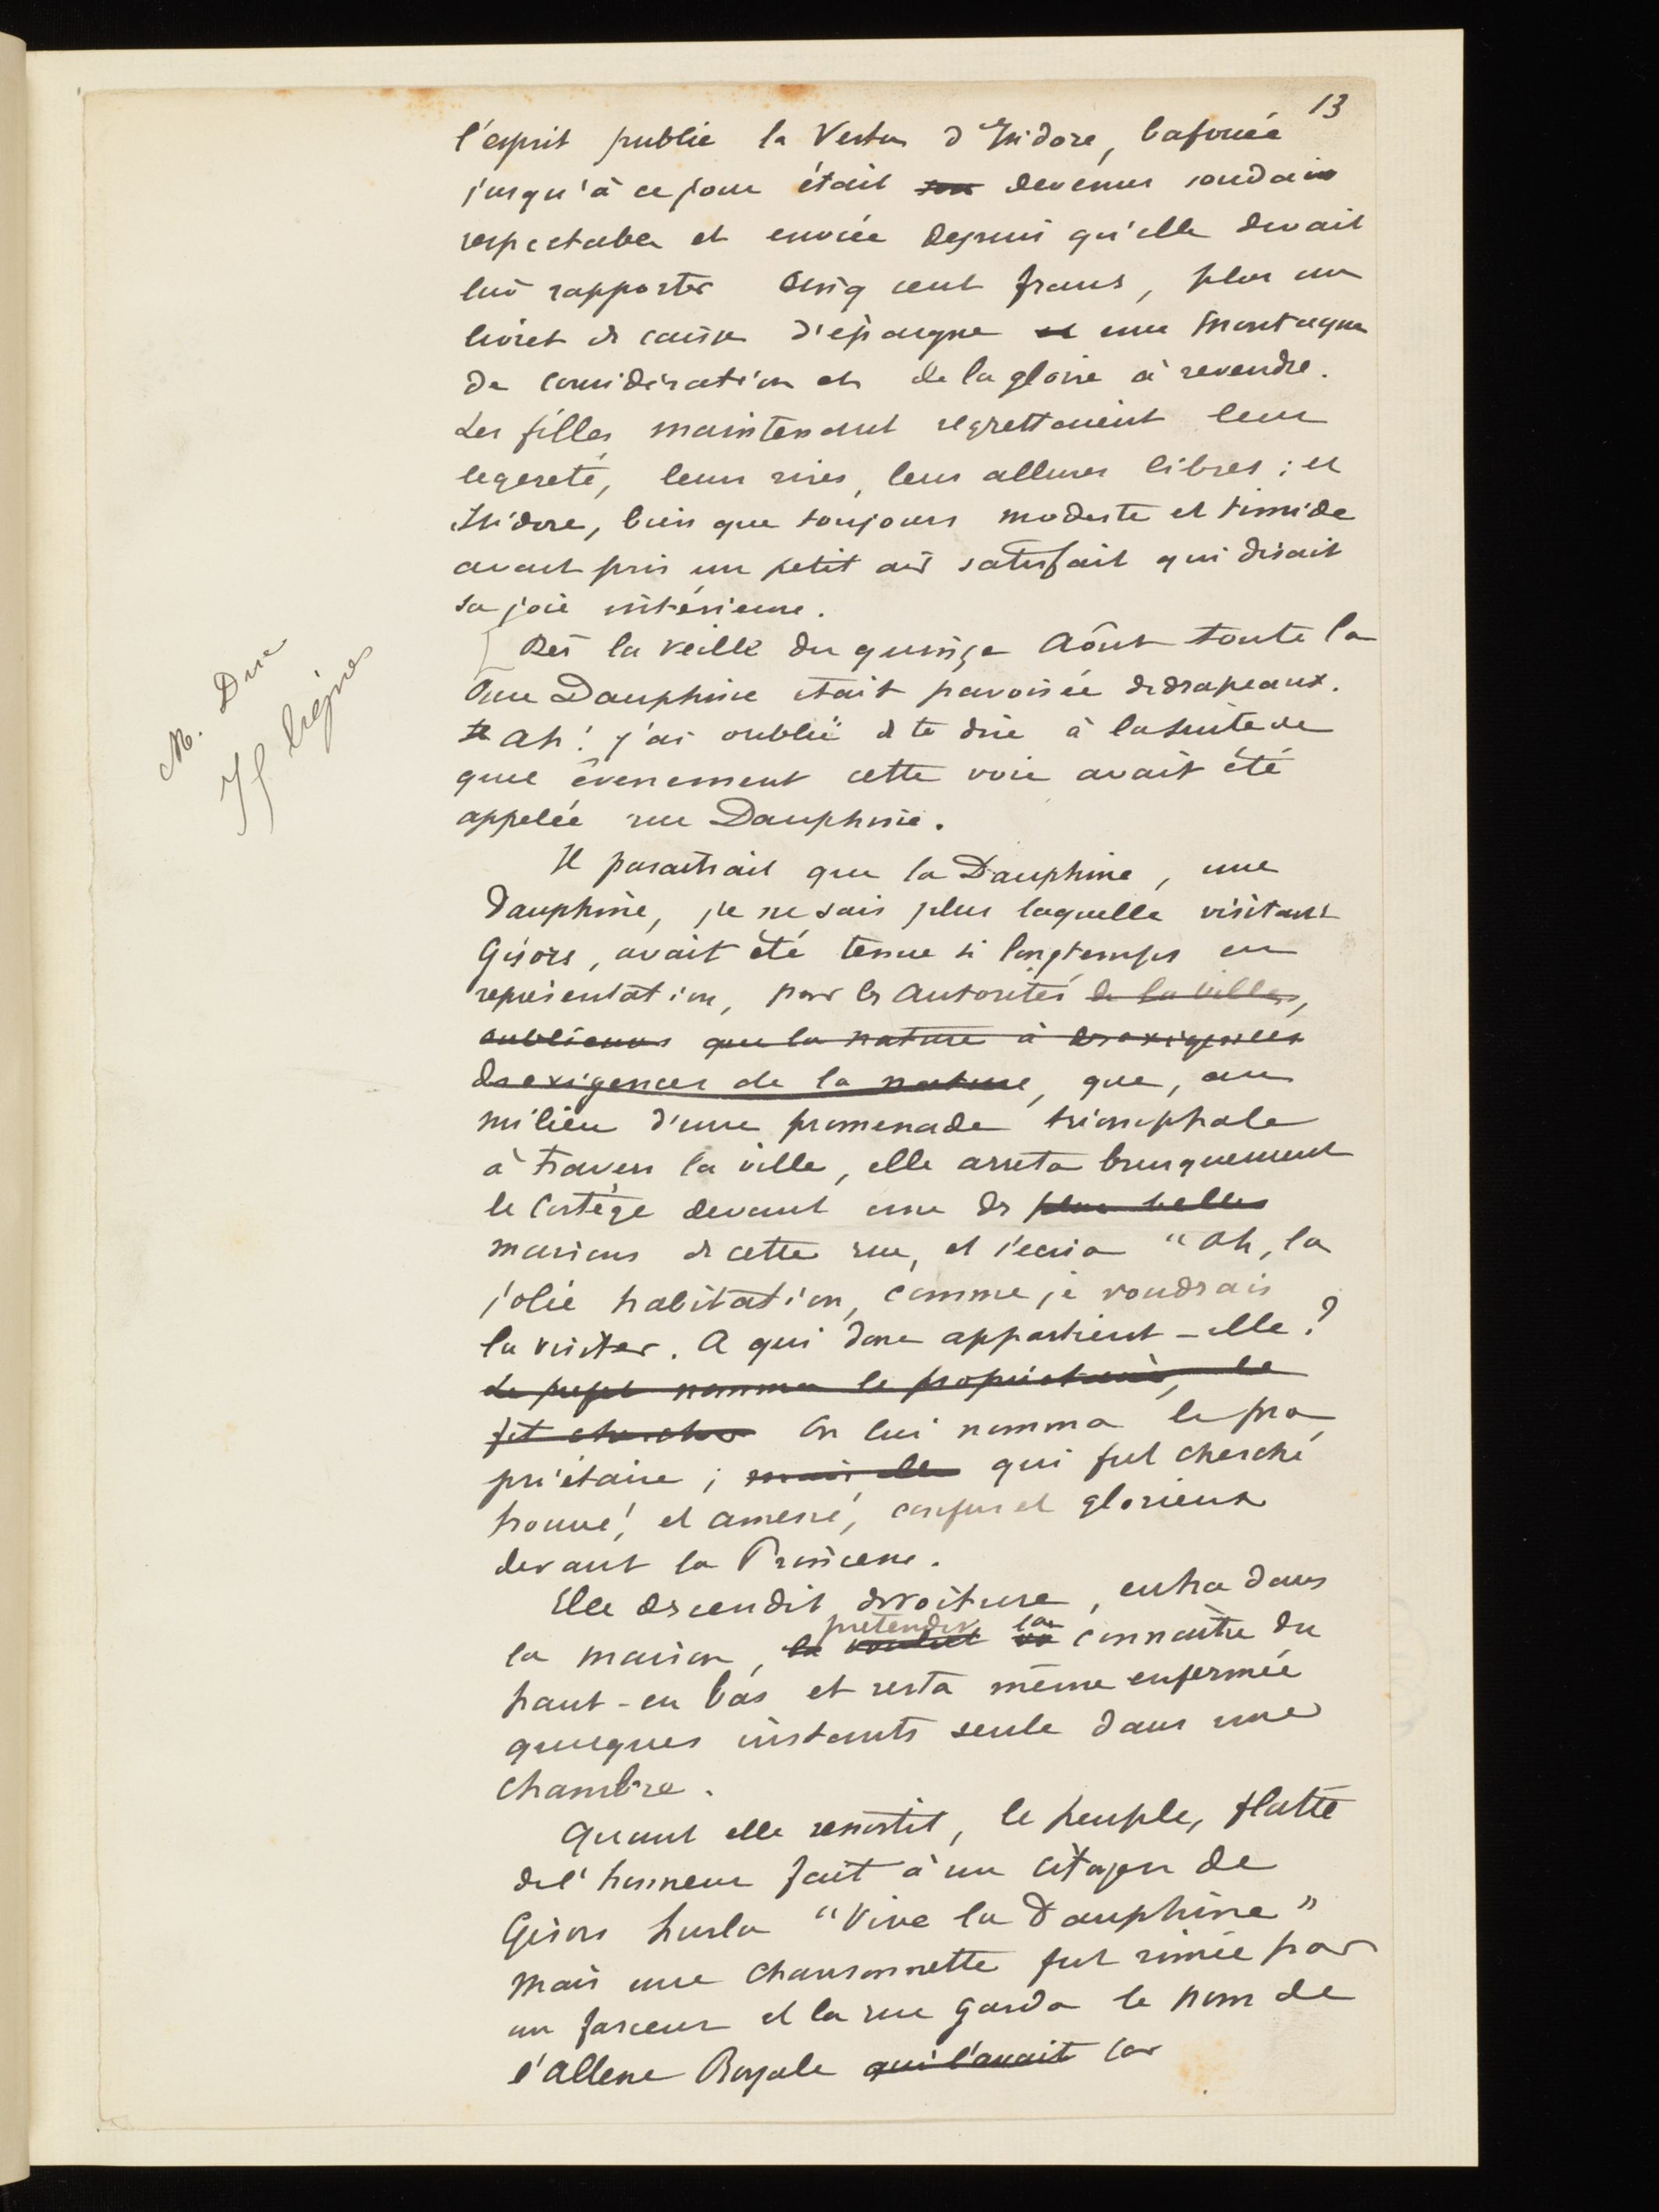 13
l'esprit public la Vertu d'Isidore, bafouée
jusqu'à ce jour était devenue soudain
respectable et enviée depuis qu'elle devait
lui rapporter cinq cent francs, plus un
livret de caisse d'épargne et une montagne
de considération et de la gloire à revendre.
Les filles maintenant regrettaient leur
legereté, leurs rires, leurs allures libres ; et
Isidore, bien que toujours modeste et timide
avait pris un petit air satisfait qui disait
sa joie intérieure.
[ Dès la veille du quinze Août toute la
Rue Dauphine était pavoisée de drapeaux.
Ah ! j'ai oublié de te dire à la suite de
quel évenement cette voie avait été
appelée rue Dauphine.
M. Duc
Il paraitrait que la Dauphine, une
dauphine, je ne sais plus laquelle visitant
Gisors, avait été tenue si longtemps en
représentation, par les autorités de la ville,
oubliant que la nature à des exigences
des exigences de la nature, que, au
milieu d'une promenade triomphale
à travers la ville, elle arreta brusquement
le Cortège devant une des plus belles
maisons de cette rue, et s'écria "Oh, la
jolie habitation, comme je voudrais
la visiter. A qui donc appartient-elle ?
Le prefet nomma le propriétaire, le
fit chercher On lui nomma le pro
priétaire ; qui fut cherché
trouvé, et amené, confus et glorieux
devant la Princesse.
Elle descendit de voiture, entra dans
pretendit la
la maison, la voulut connaitre du
haut-en bas et resta même enfermée
quelques instants seule dans une
chambre.
Quand elle ressortit, le peuple, flatté
de l'honneur fait à un citoyen de
Gisors hurla "Vive la Dauphine"
Mais une chansonnette fut rimée par
un farceur et la rue garda le nom de
l'Altesse Royale qui l'avait car